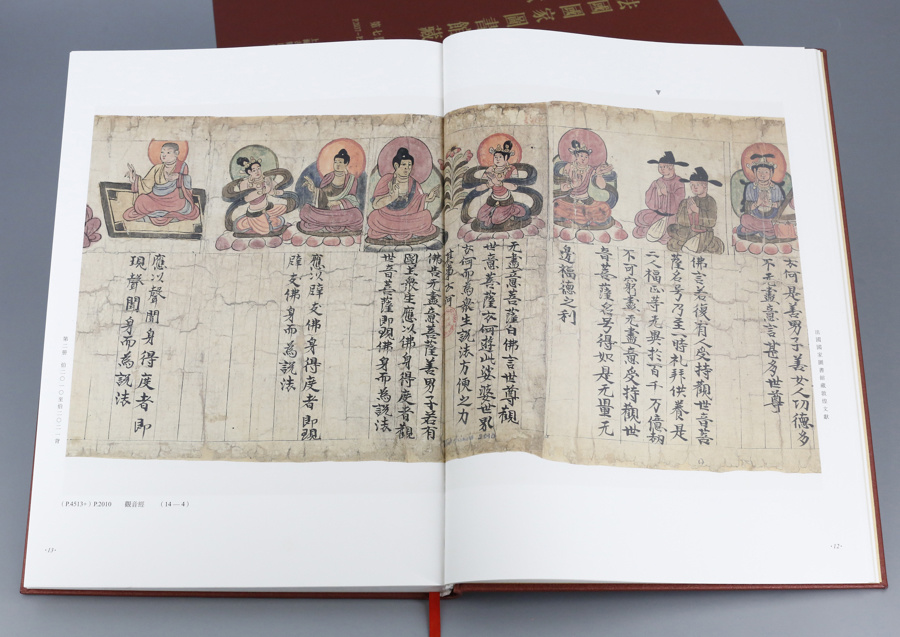 法國國家圖書館藏
云何是善男子善女人功德多
不无盡意言甚多世尊
佛言若復有人受持觀世音菩
薩名号乃至一時礼拜供養是
二人福正等无異於百千万億劫
不可窮盡无盡意受持觀世
音菩薩名号得如是无量无
邊福德之利
无盡意菩薩白佛言世尊觀
世音菩薩云何遊此娑婆世界
云何而為衆生說法方便之力
其事云何
佛告无盡意菩薩善男子若有
國土衆生應以佛身得度者觀
世音菩薩即現佛身而為說法
應以辟支佛身得度者即現
辟支佛身而為說法
應以聲聞身得度者即
現聲聞身而為說法
法國國家圖書館藏敦煌文獻
第二册
(P.4513+) P.2010 觀音經 (14—4)
·13·
·12·